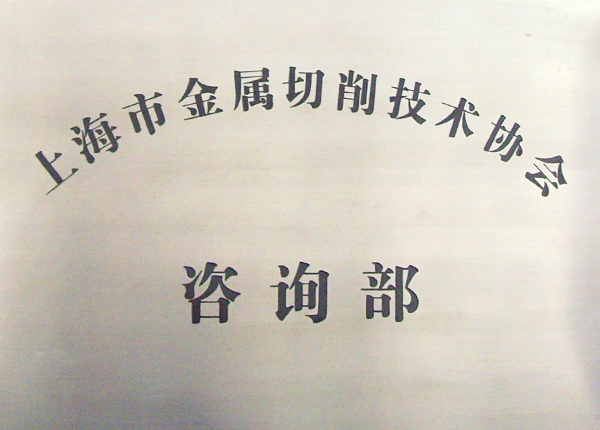 上海市金属切削技术协会
咨询部